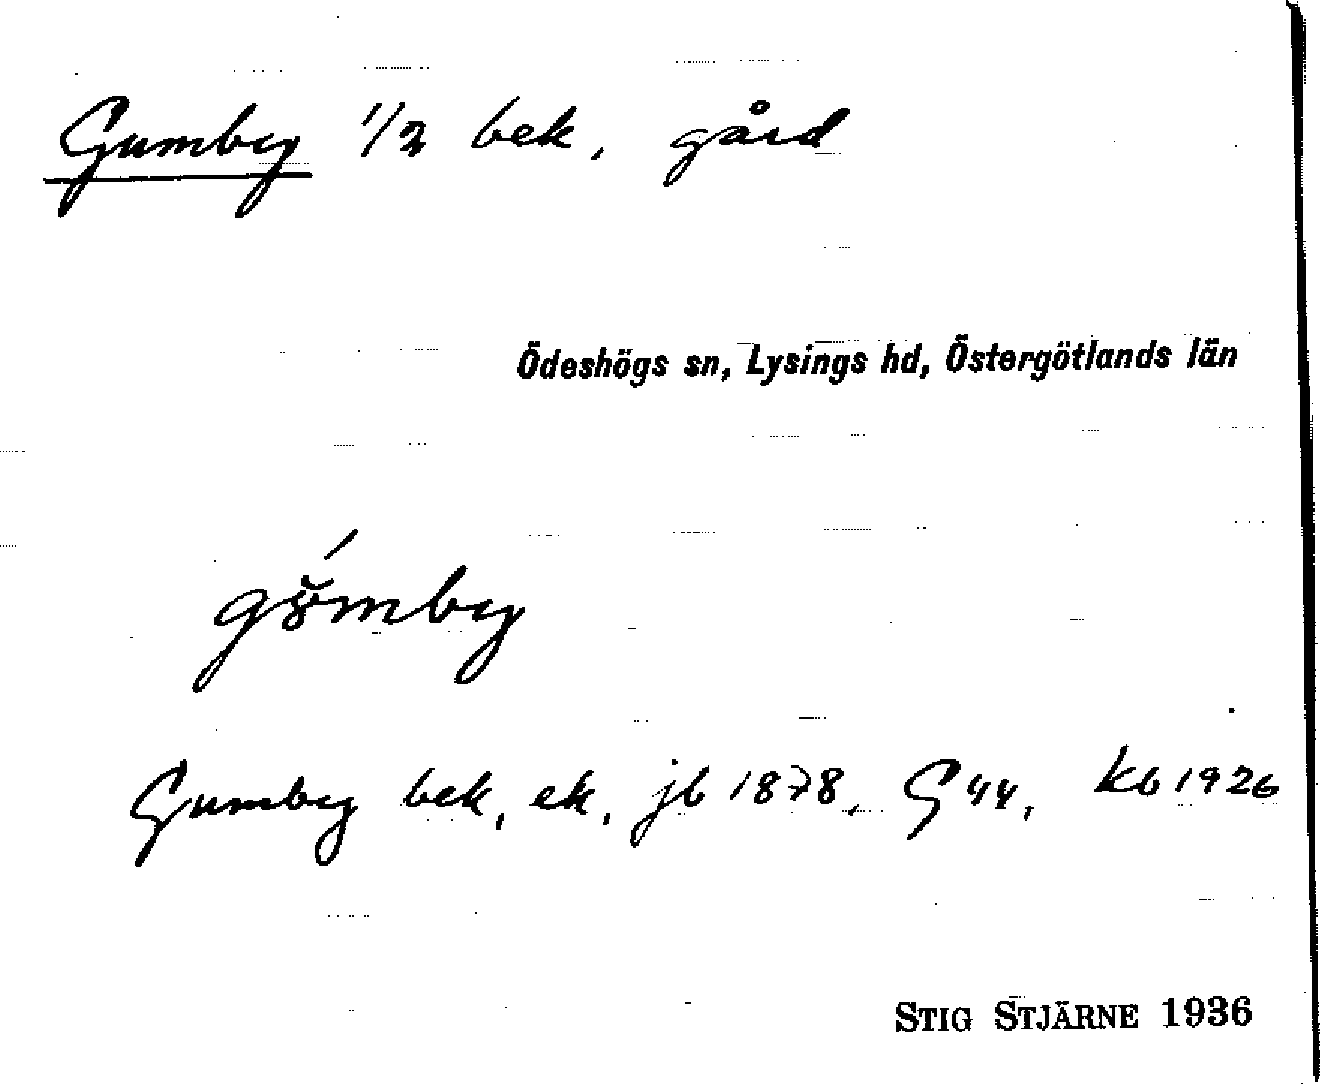 Gumby 1/2 bek, gård
Ödeshögs sn, Lysings hd, Östergötlands län
Gumby bek, ek, jb 1878, G 44, kb 1926
STIG STJÄRNE 1936